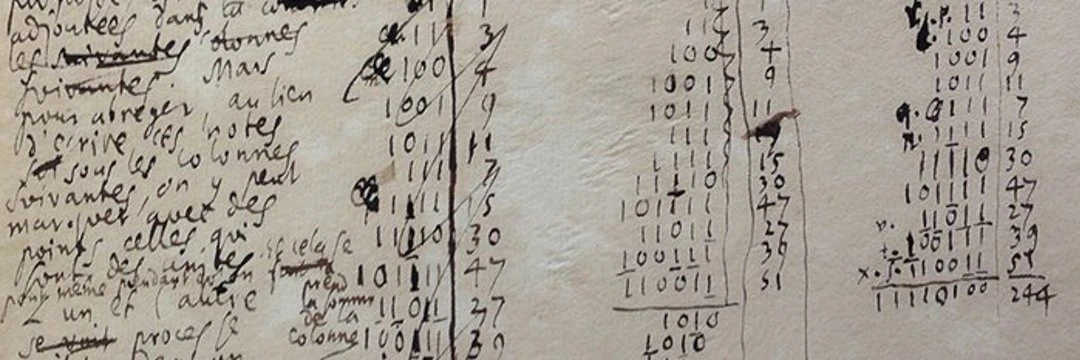 adjoutées dans la
les suivantes donnes
suivantes. Mais
pour abreger, au lieu
d'ecrire ces notes
sous les colonnes
suivantes, on y peut
marquer avec des
points celles qui
sont des
un et l'autre
se voit proces
se cela se
prend
la somme
de la
colonne
11 3
100 4
1001 9
1011 11
111 7
1111 15
11110 30
101111 47
11011 27
100111 39
11 3
100 4
1001 9
1011 11
111
1111 15
11110 30
101111 47
11011 27
100111 39
110011 51
1010
1010
11 3
100 4
1001 9
1011 11
111 7
1111 15
11110 30
101111 47
11011 27
100111 39
110011 51
11110100 244